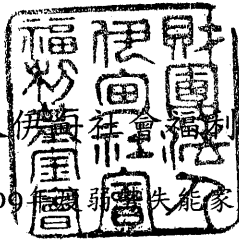 財團法人
伊甸社會
福利基金會
伊甸社會福利
09年度弱勢失能家